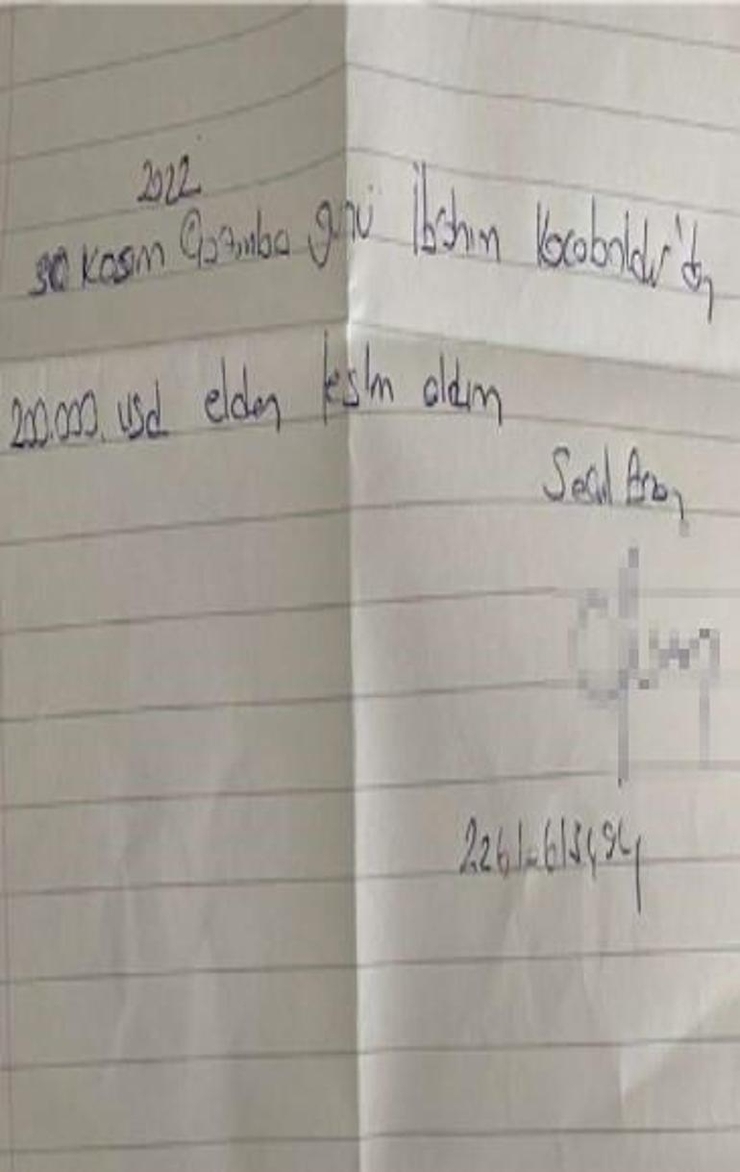 2022
30 Kasım Çarşamba günü İbrahim Kocabaldır'dan
200.000. usd elden teslm aldım
Seçil Erzan